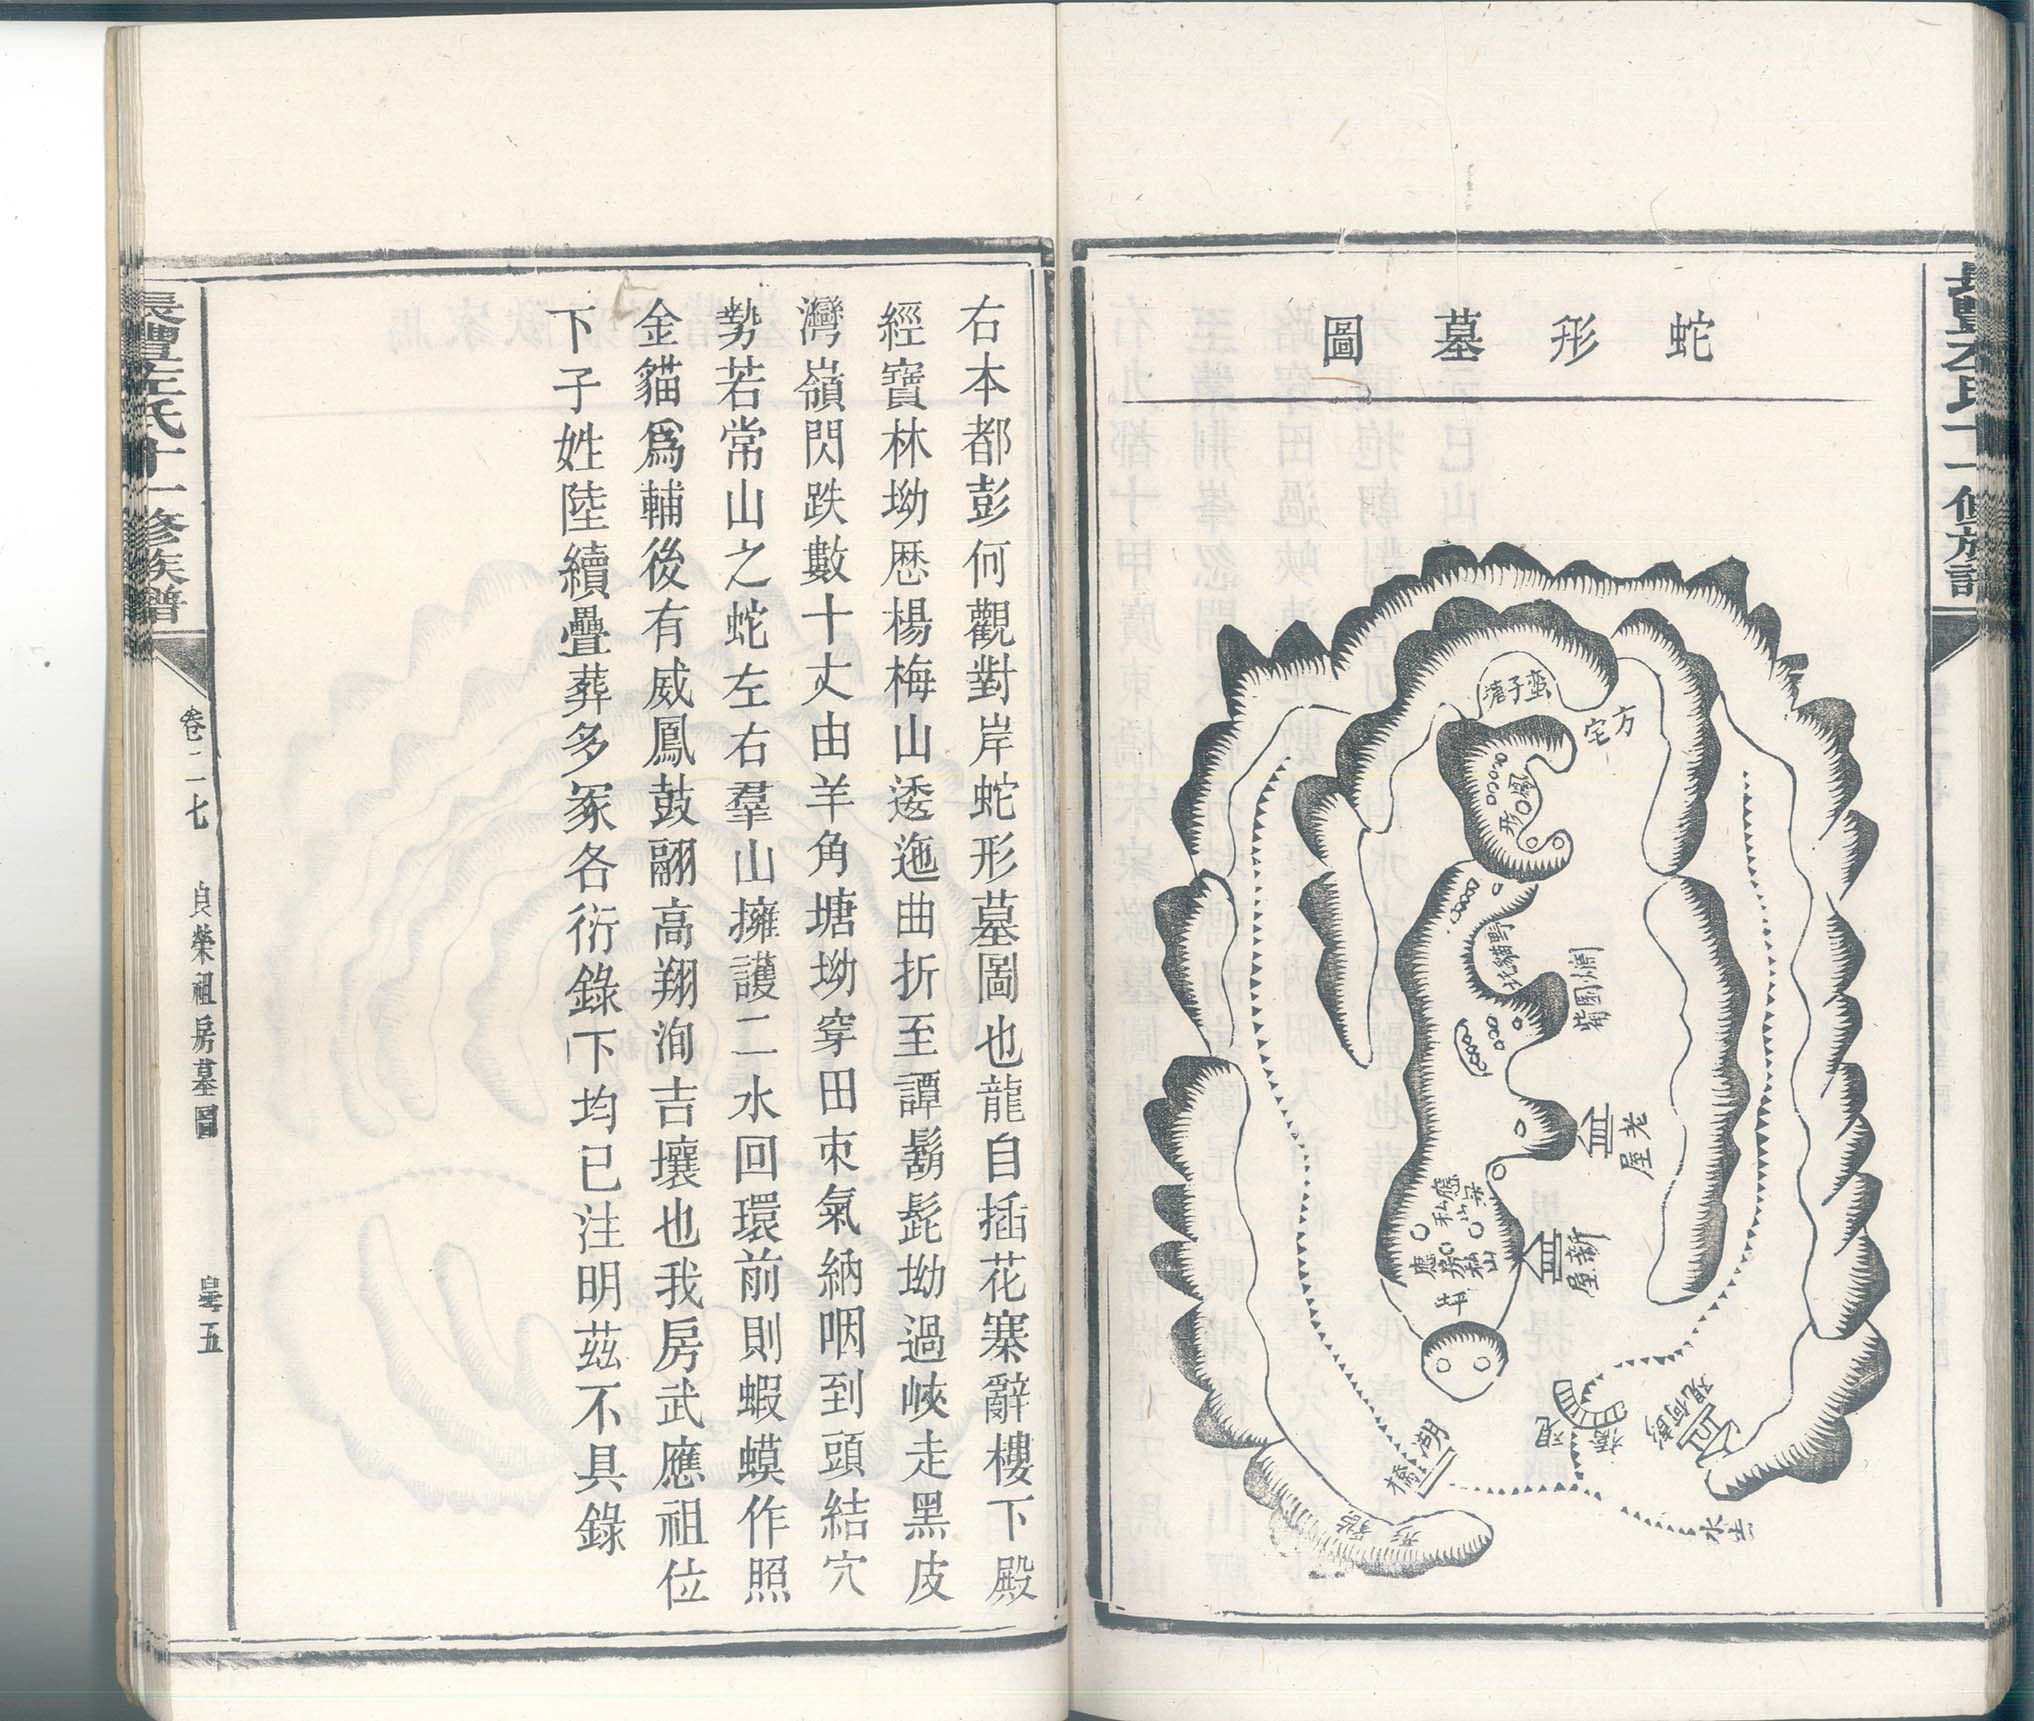 蛇形墓圖
蛮子
方宅
鳳形
老屋
新屋
應房私山
坪
彭何覌
覌橋
湖橋
水
形
右本都彭何觀對岸蛇形墓圖也龍自插花寨辭樓下殿
經寶林坳歷楊梅山逶迤曲折至譚鬍髭坳過峽走黑皮
灣嶺閃跌數十丈由羊角塘坳穿田束氣納咽到頭結穴
勢若常山之蛇左右羣山擁護二水回環前則蝦蟆作照
金貓爲輔後有威鳳鼓翮高翔洵吉壤也我房武應祖位
下子姓陸續疊葬多冢各衍錄下均已注明茲不具錄
長豐左氏十一修族譜
卷二七
貞榮祖房墓圖
五